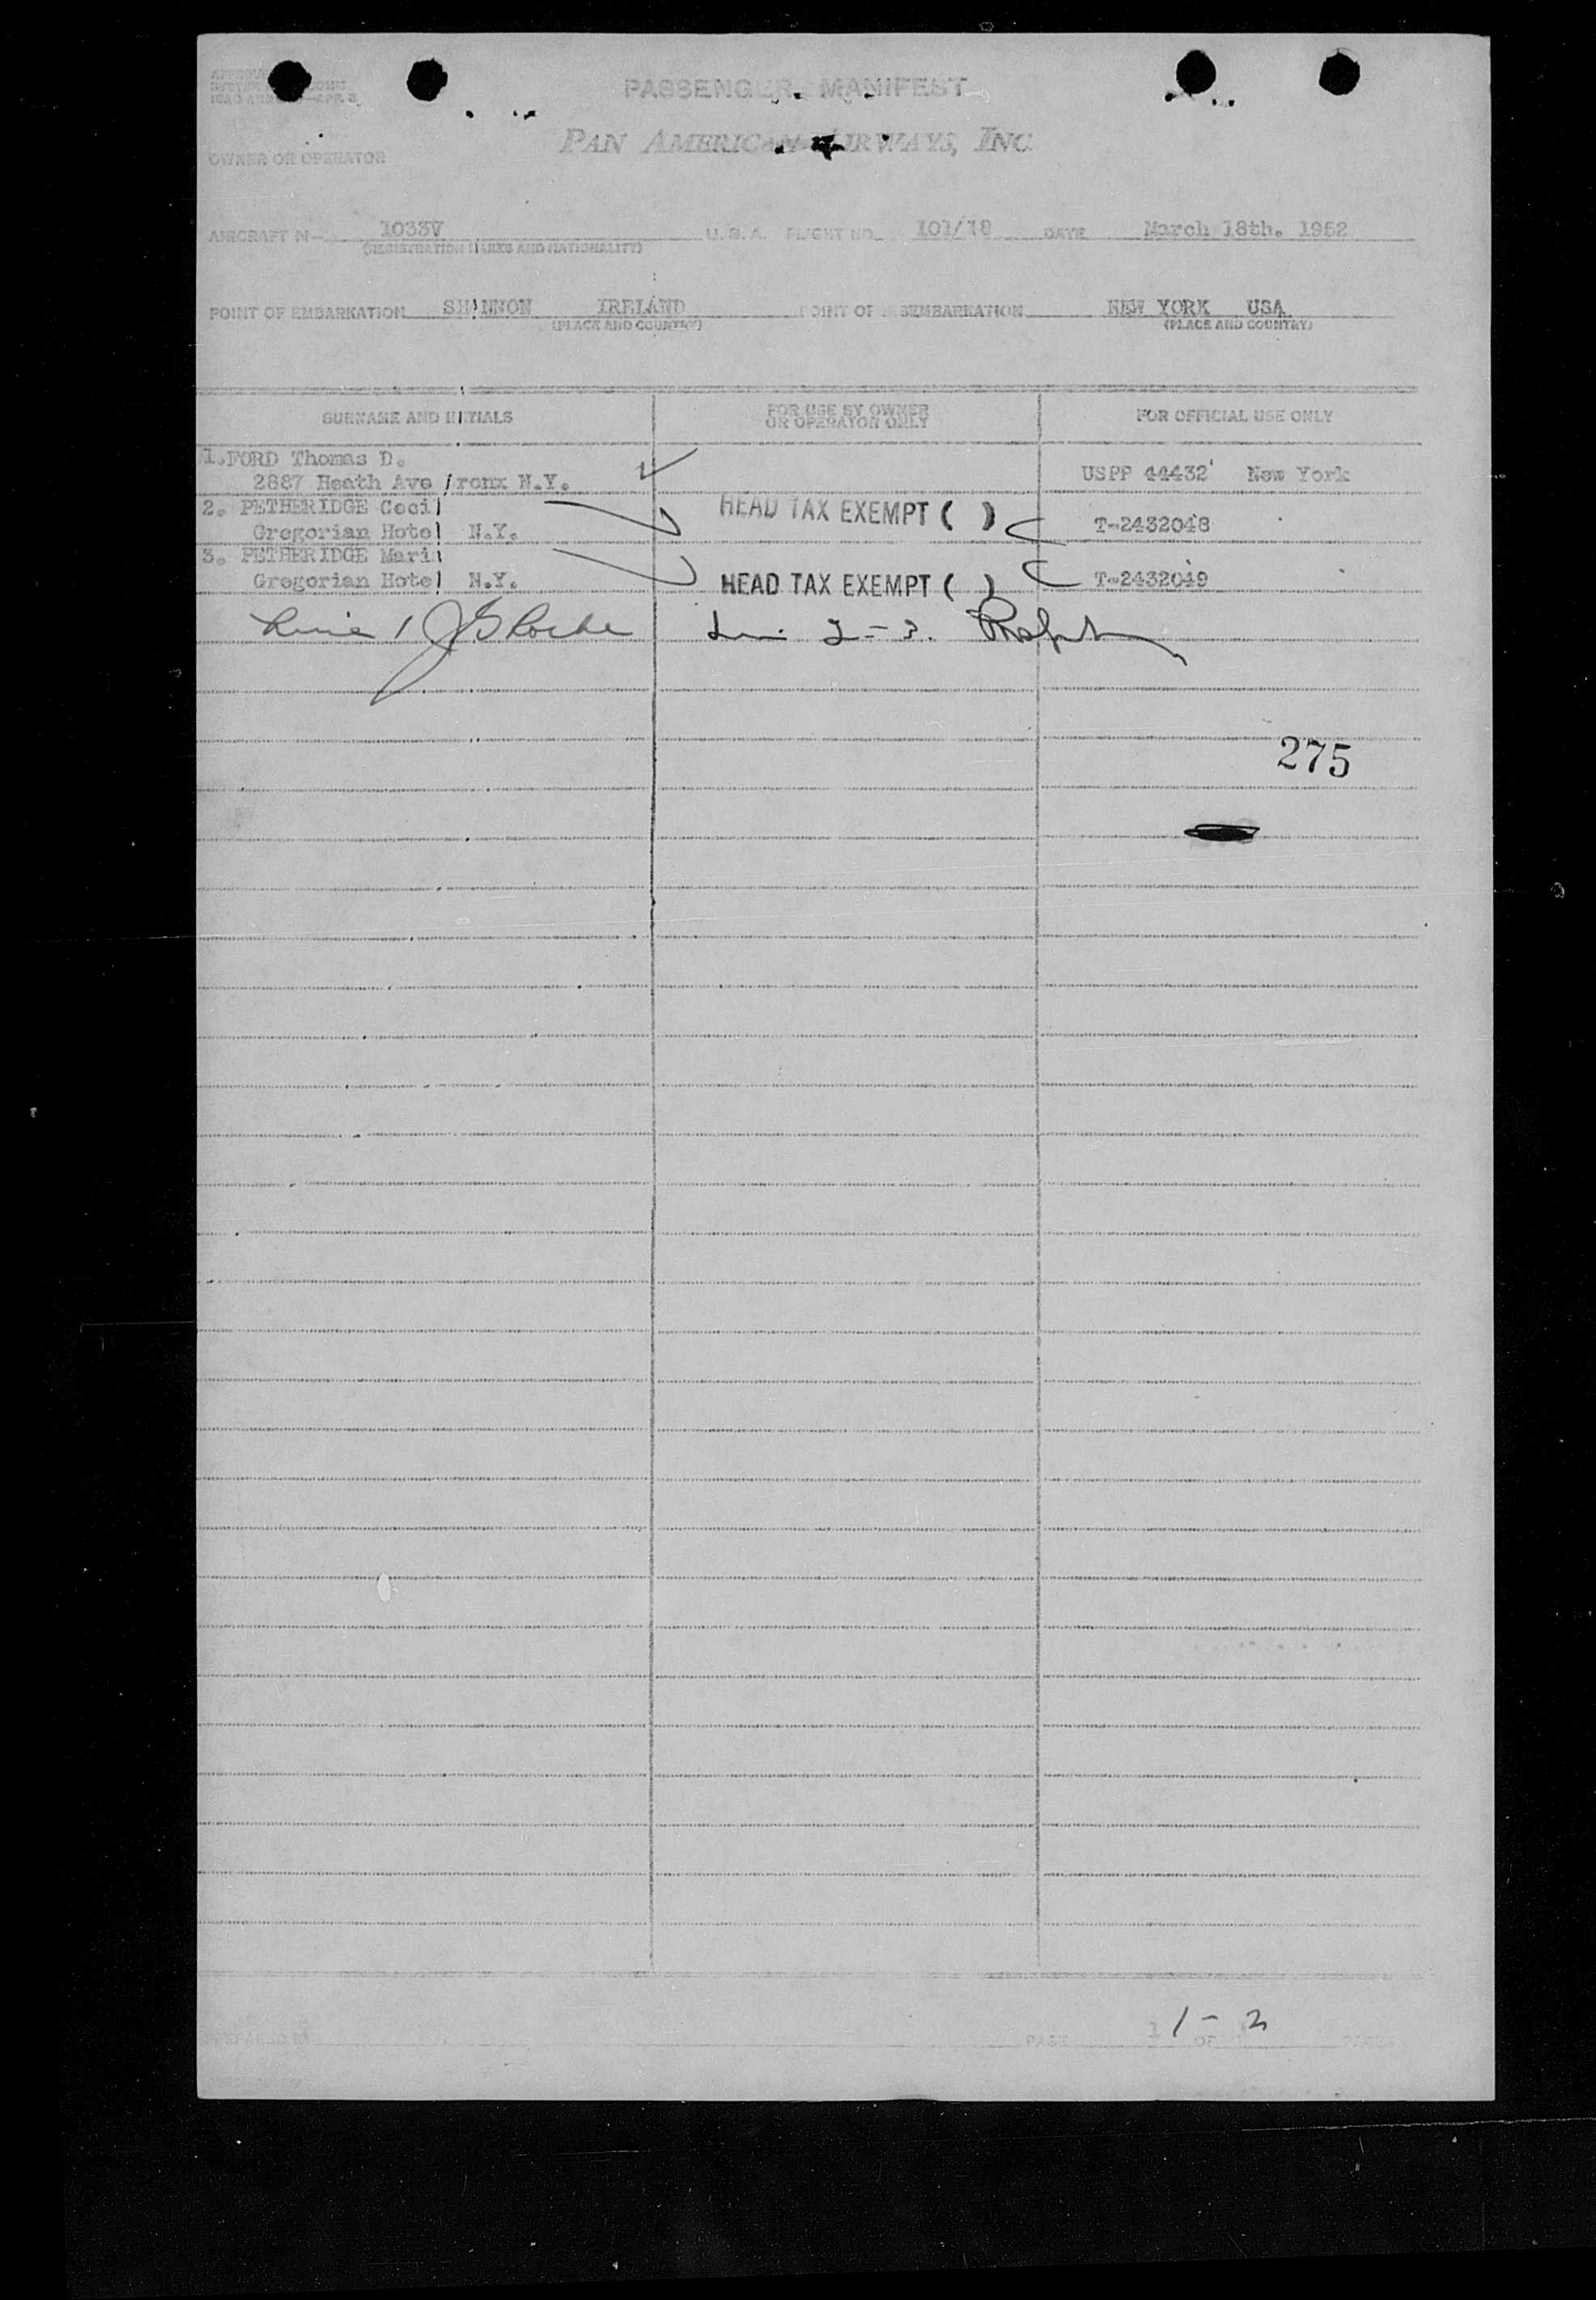 PASSENGER MANIFEST
PAN AMERICAN AIRWAYS, INC.
OWNER OR OPERATOR
AIRCRAFT N— 1033V U.S.A. FLIGHT NO. 101/18 DATE March 18th. 1952
(REGISTRATION MARKS AND NATIONALITY)
POINT OF EMBARKATION SHANNON IRELAND POINT OF DISEMBARKATION NEW YORK USA
(PLACE AND COUNTRY) (PLACE AND COUNTRY)
SURNAME AND INITIALS FOR USE BY OWNER OR OPERATOR ONLY FOR OFFICIAL USE ONLY
1.FORD Thomas D.
2887 Heath Ave Bronx N.Y. USPP 44432 New York
2. PETHERIDGE Cecil HEAD TAX EXEMPT ( )
Gregorian Hotel N.Y. T-2432048
3. PETHERIDGE Maria
Gregorian Hotel N.Y. HEAD TAX EXEMPT ( ) T-2432049
Line 1 2-3.
275
1-2
PAGE 1 OF PAGES